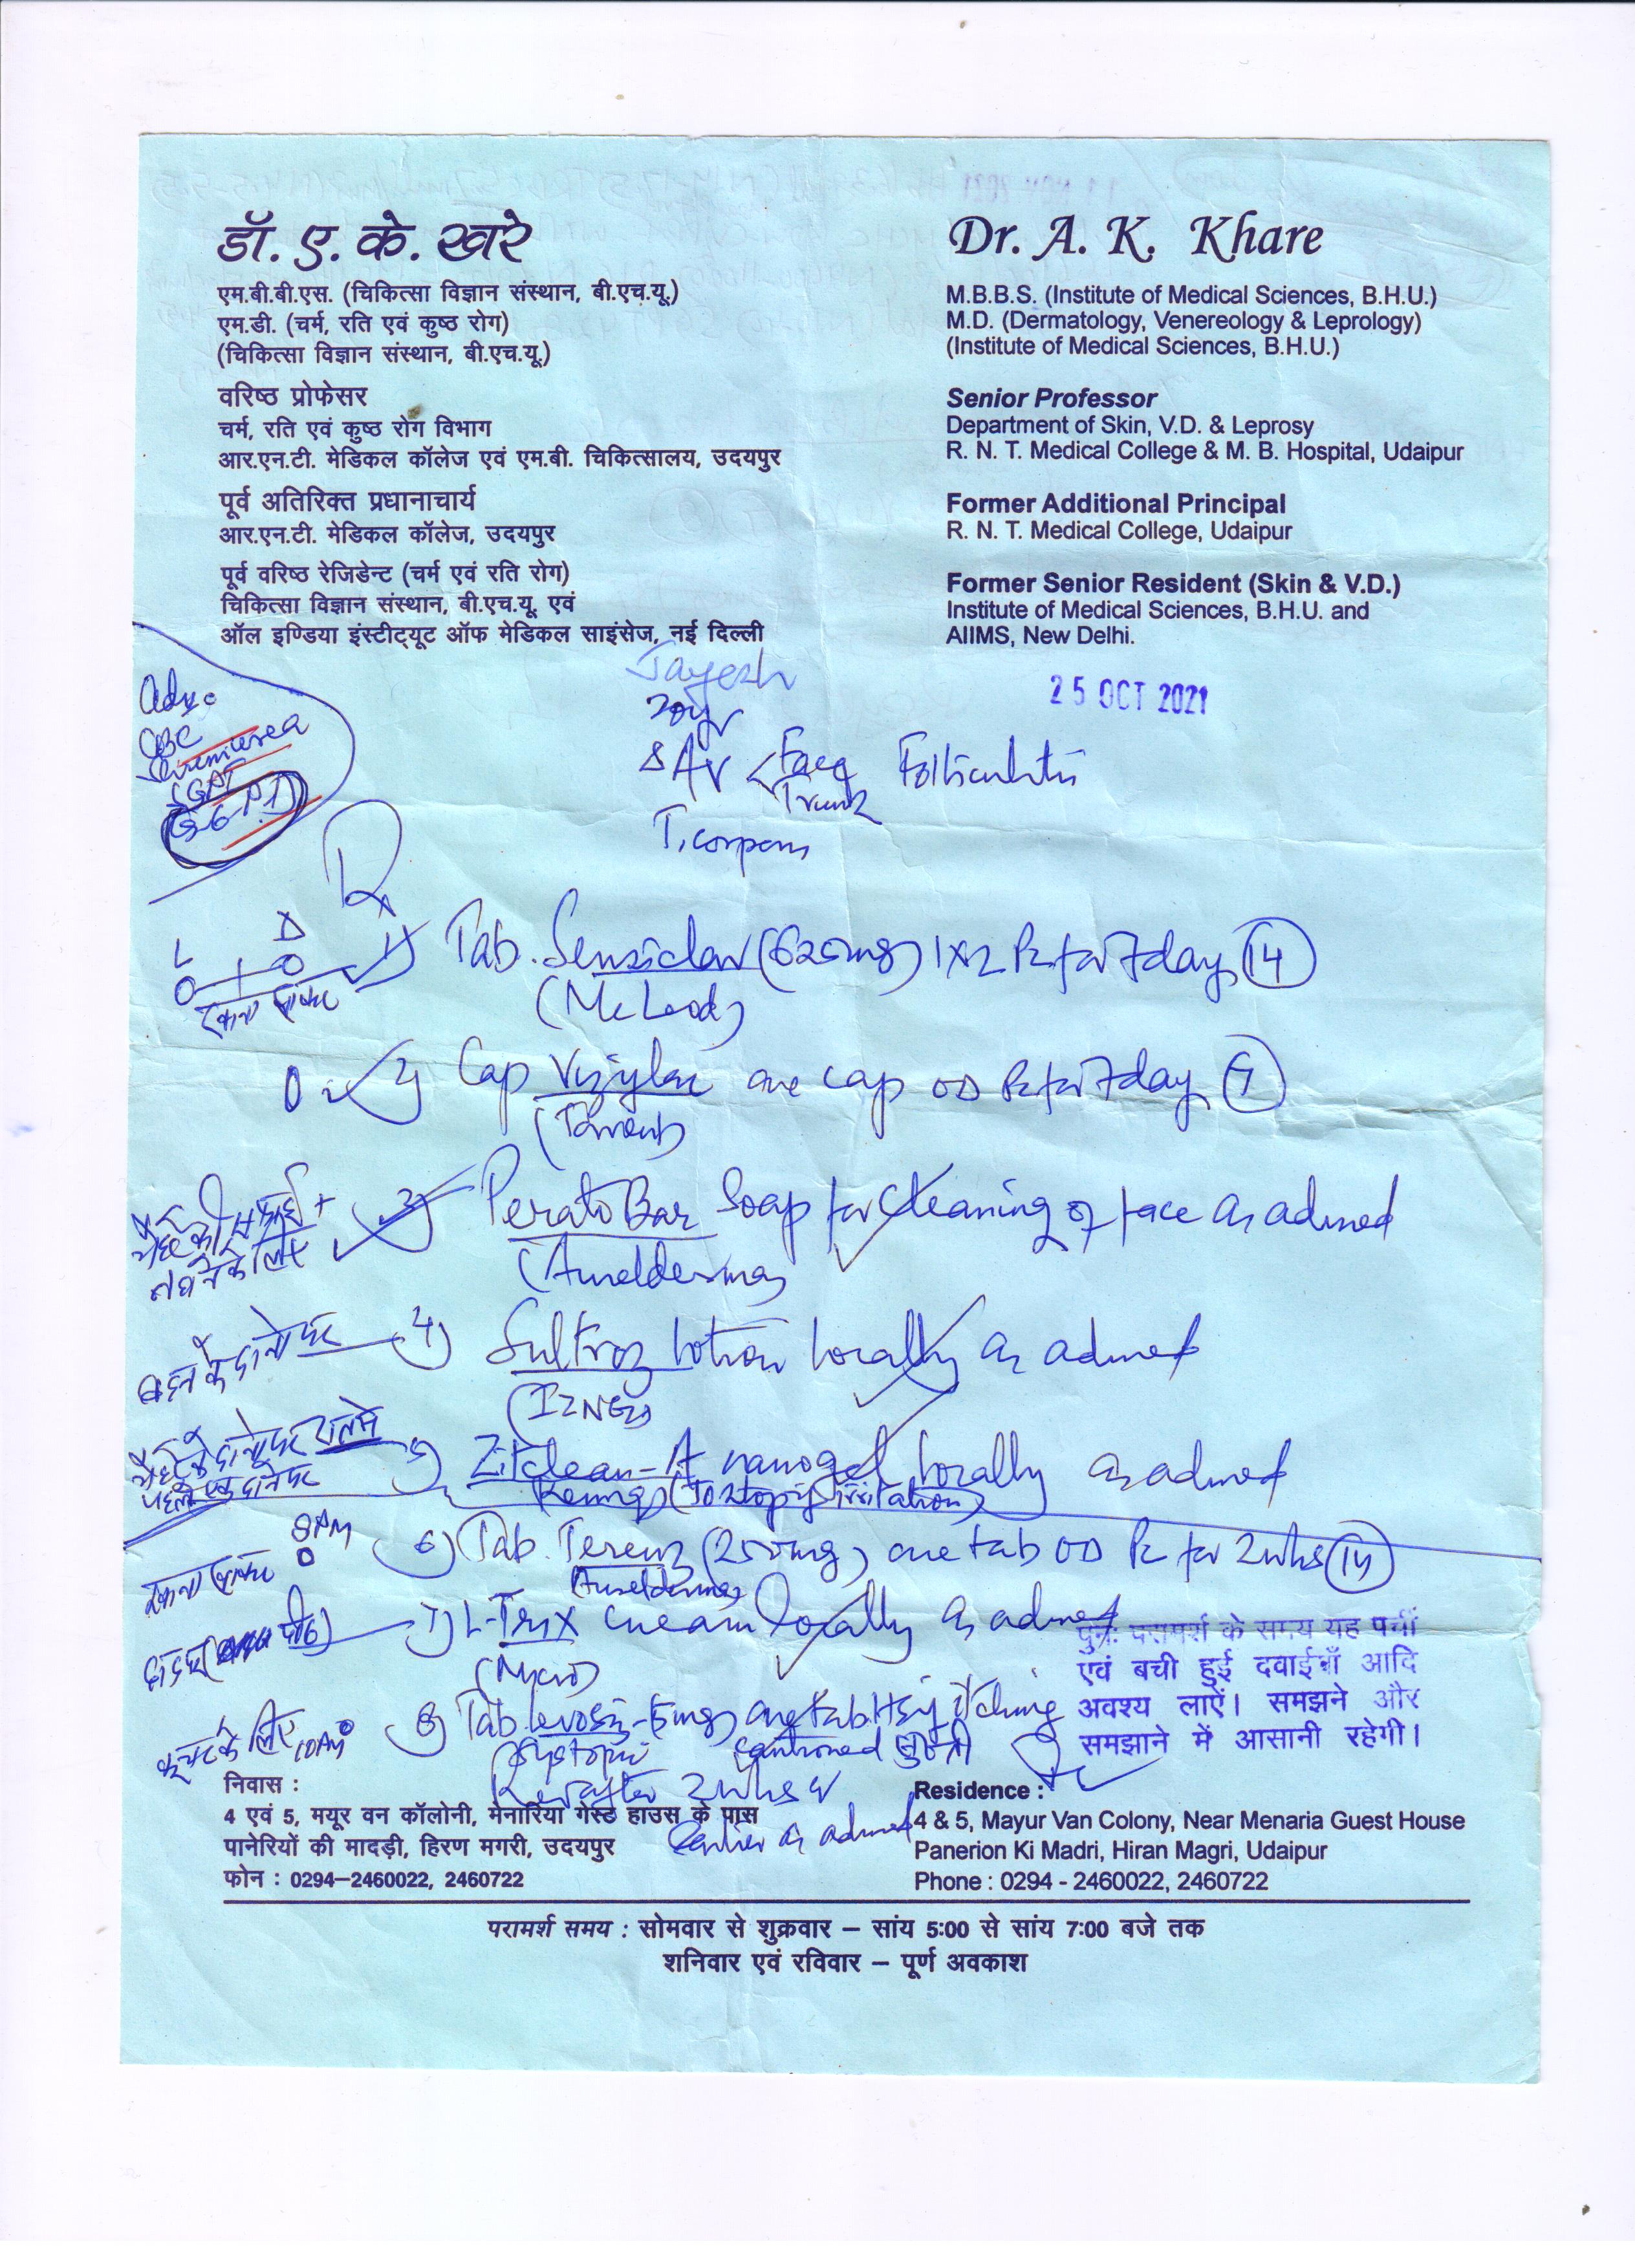 डॉ. ए. के. खरे
एम.बी.बी.एस. (चिकित्सा विज्ञान संस्थान, बी.एच.यू.)
एम.डी. (चर्म, रति एवं कुष्ठ रोग)
(चिकित्सा विज्ञान संस्थान, बी.एच.यू.)
वरिष्ठ प्रोफेसर
चर्म, रति एवं कुष्ठ रोग विभाग
आर.एन.टी. मेडिकल कॉलेज एवं एम.बी. चिकित्सालय, उदयपुर
पूर्व अतिरिक्त प्रधानाचार्य
आर.एन.टी. मेडिकल कॉलेज, उदयपुर
पूर्व वरिष्ठ रेजिडेन्ट (चर्म एवं रति रोग)
चिकित्सा विज्ञान संस्थान, बी.एच.यू. एवं
ऑल इण्डिया इंस्टीट्यूट ऑफ मेडिकल साइंसेज, नई दिल्ली
Dr. A. K. Khare
M.B.B.S. (Institute of Medical Sciences, B.H.U.)
M.D. (Dermatology, Venereology & Leprology)
(Institute of Medical Sciences, B.H.U.)
Senior Professor
Department of Skin, V.D. & Leprosy
R. N. T. Medical College & M. B. Hospital, Udaipur
Former Additional Principal
R. N. T. Medical College, Udaipur
Former Senior Resident (Skin & V.D.)
Institute of Medical Sciences, B.H.U. and
AIIMS, New Delhi.
25 OCT 2021
Jayesh
20y
AV Face Folliculitis
Trunk
T. corporis
Adv:
CBC
Serum urea
SGPT
Rx
L D
खाना खाकर
1) Tab. Sensiclav (625mg) 1x2 Pc for 7 days 14
(McLeods)
2) Cap Vizylac one cap OD Pc for 7 days 7
(Torrent)
3) Perato Bar Soap for cleaning of face as advised
चेहरे की सफाई +
(Aurelderma)
बदन के दानों पर 4) Sultroz lotion locally as advised
5) Zitclean-A nanogel locally as advised
चेहरे के दानों पर रात में
पहले एक दाने पर
(To stop if irritation)
8PM
खाना खाकर
6) Tab. Terenz (250mg) one tab OD Pc for 2wks 14
(Aurelderma)
7) L-Trix cream locally as advised
(Micro)
खुजली के लिए 10PM
8) Tab Levosiz-5mg one tab HS if itching
cautioned सुस्ती
Rev after 2wks or
Earlier as advised
पुनः परामर्श के समय यह पर्ची
एवं बची हुई दवाईयाँ आदि
अवश्य लाऐं। समझने और
समझाने में आसानी रहेगी।
निवास :
4 एवं 5, मयूर वन कॉलोनी, मेनारिया गेस्ट हाउस के पास
पानेरियों की मादड़ी, हिरण मगरी, उदयपुर
फोन : 0294–2460022, 2460722
Residence :
4 & 5, Mayur Van Colony, Near Menaria Guest House
Panerion Ki Madri, Hiran Magri, Udaipur
Phone : 0294 - 2460022, 2460722
परामर्श समय : सोमवार से शुक्रवार – सांय 5:00 से सांय 7:00 बजे तक
शनिवार एवं रविवार – पूर्ण अवकाश